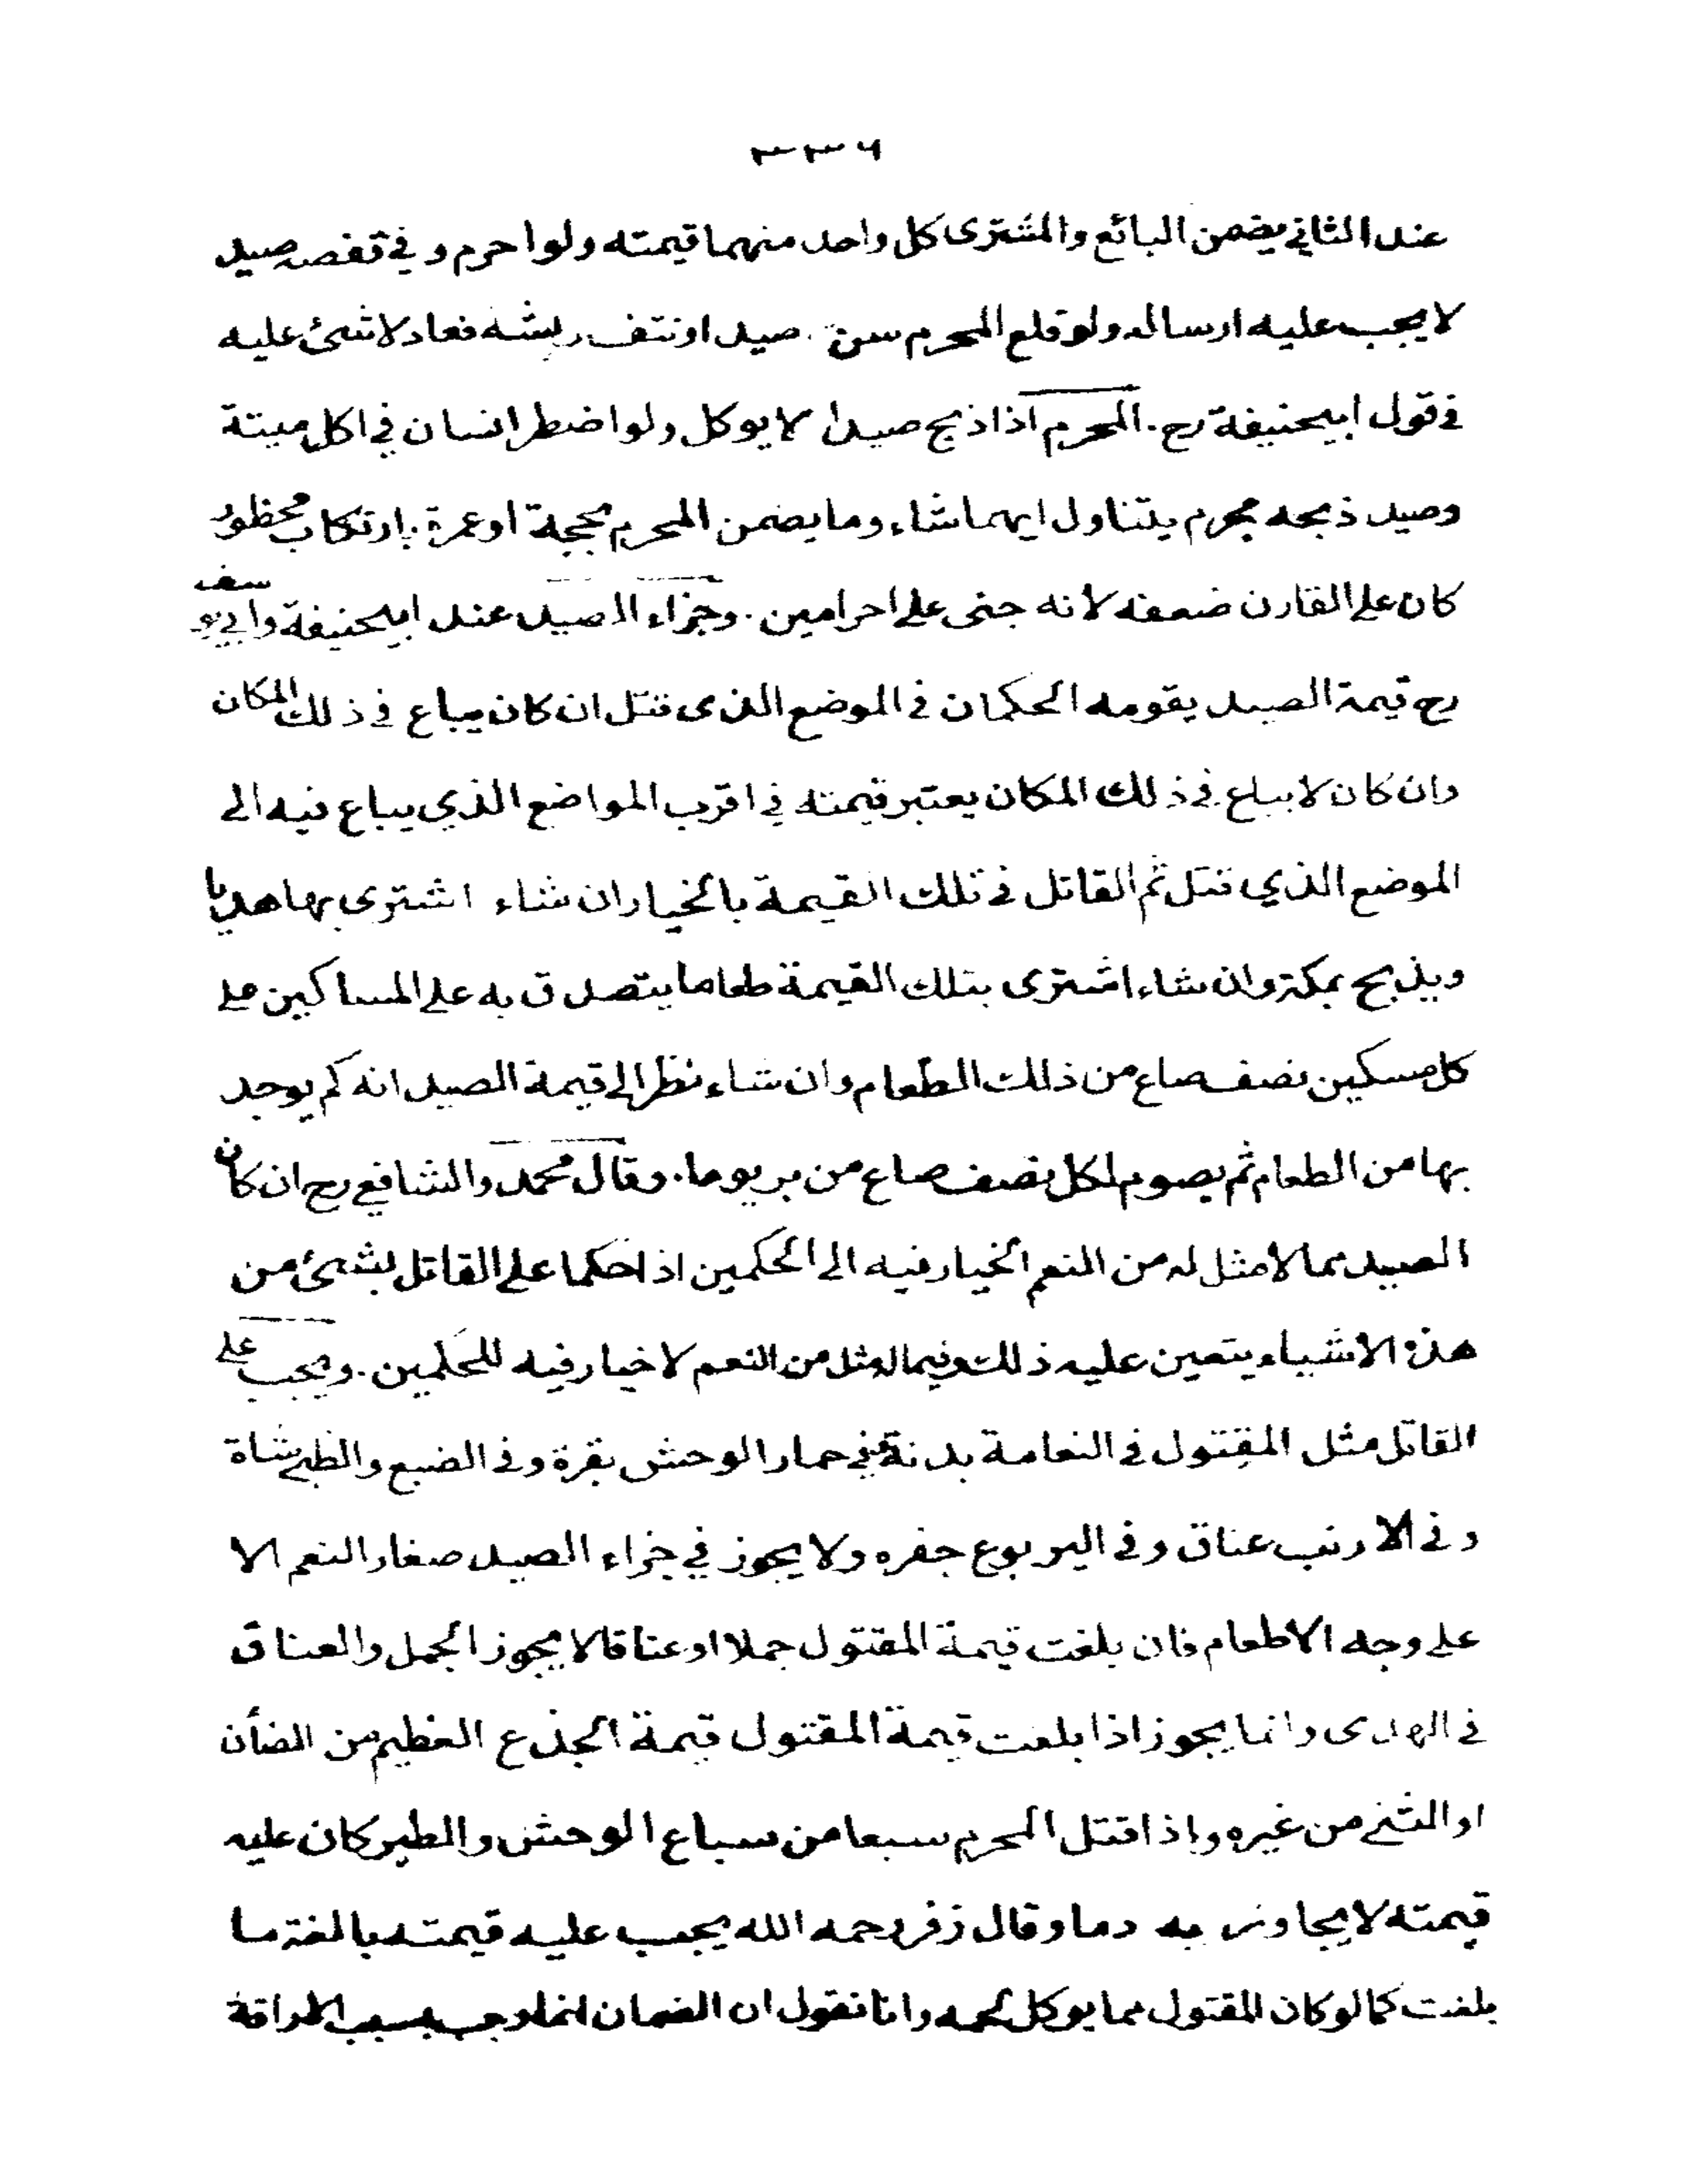 ٣٣٦
عند الثاني يضمن البائع والمشترى كل واحد منهما قيمته ولو احرم و في قفصه صيد
لا يجب عليه ارساله ولو قلع المحرم سن صيد او نتف ريشه فعاد لا شئ عليه
في قول ابيحنيفة رح . المحرم اذا ذبح صيدا لا يوكل ولو اضطر انسان في اكل ميتة
وصيد ذبحه محرم يتناول ايهما شاء وما يضمن المحرم بحجة او عمرة بارتكاب محظور
كان على القارن ضعفه لانه جنى على احرامين . وجزاء الصيد عند ابيحنيفة وابي يوسف
رح قيمة الصيد يقومه الحكمان في الموضع الذى قتل ان كان يباع في ذلك المكان
وان كان لا يباع في ذلك المكان يعتبر قيمته في اقرب المواضع الذي يباع فيه الى
الموضع الذي قتل ثم القاتل في تلك القيمة بالخيار ان شاء اشترى بها هديا
ويذبح بمكة وان شاء اشترى بتلك القيمة طعاما يتصدق به على المساكين على
كل مسكين نصف صاع من ذلك الطعام وان شاء نظر الى قيمة الصيد انه كم يوجد
بها من الطعام ثم يصوم لكل نصف صاع من بر يوما . وقال محمد والشافعي رح ان كان
الصيد مما لا مثل له من النعم الخيار فيه الى الحكمين اذا حكما على القاتل بشئ من
هذه الاشياء يتعين عليه ذلك وفيما له مثل من النعم لا خيار فيه للحكمين . ويجب على
القاتل مثل المقتول في النعامة بدنة وفي حمار الوحش بقرة وفي الضبع والظبي شاة
وفي الارنب عناق وفي اليربوع جفره ولا يجوز في جزاء الصيد صغار النعم الا
على وجه الاطعام فان بلغت قيمة المقتول حملا او عناقا لا يجوز الحمل والعناق
في الهدى وانما يجوز اذا بلغت قيمة المقتول قيمة الجذع العظيم من الضأن
او الثني من غيره واذا قتل المحرم سبعا من سباع الوحش والطير كان عليه
قيمته لا يجاوز به دما وقال زفر رحمه الله يجب عليه قيمته بالغة ما
بلغت كما لو كان المقتول مما يوكل لحمه وانا نقول ان الضمان انما وجب بسبب الاراقة